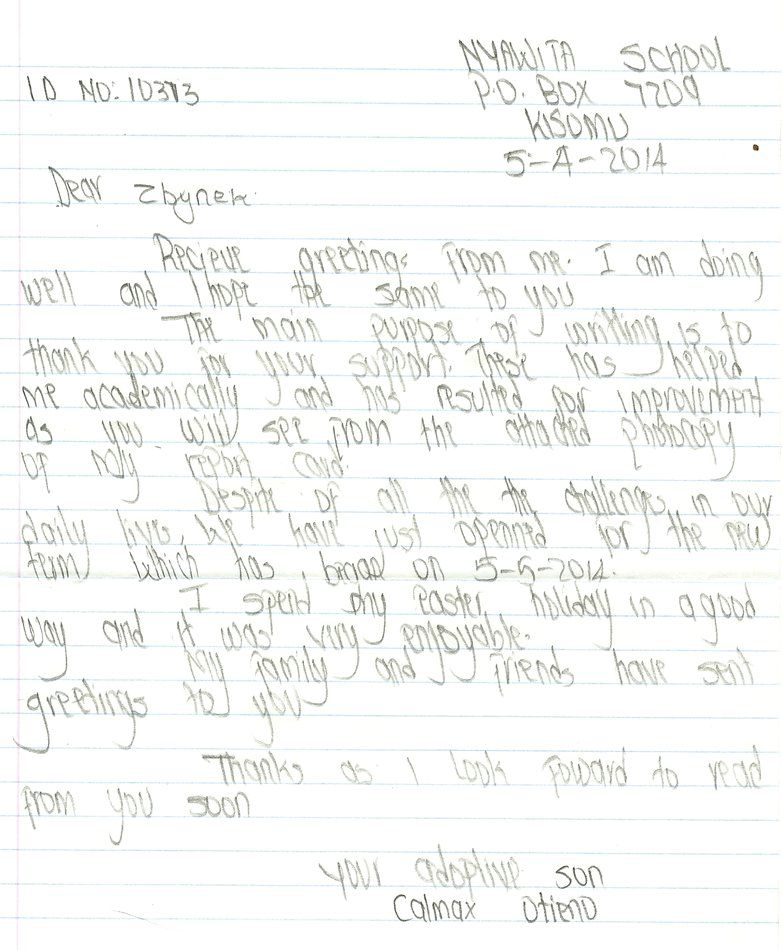 NYAWITA SCHOOL
ID NO: 10373 P.O. BOX 7209
KISUMU
5-4-2014
Dear Zbynek
Recieve greetings from me. I am doing
well and I hope the same to you
The main purpose of writting is to
thank you for your support. These has helped
me academically and has resulted for improvement
as you will see from the attached photocopy
of My report card.
Despite of all the the challenges in our
daily lives, We have just openned for the new
term which has on 5-5-2014.
I spend my easter holiday in a good
way and it was very enjoyable.
My family and friends have sent
greetings to you
Thanks as I look foward to read
from you soon
your adoptive son
Calmax Otieno